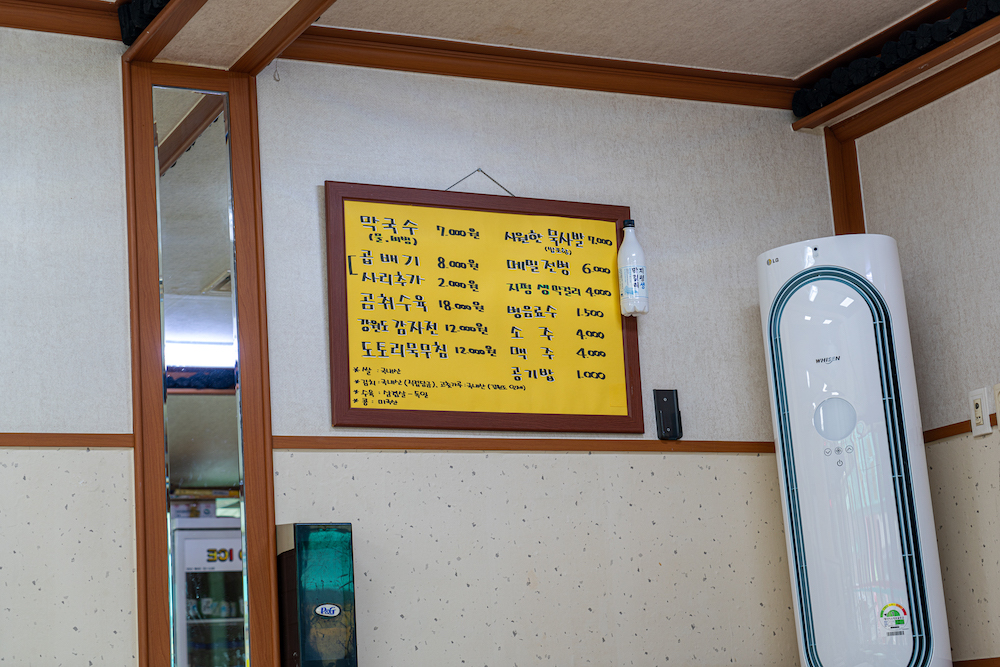 막국수 7,000원
(물,비빔)
곱배기 8,000원
사리추가 2,000원
곰취수육 18,000원
강원도 감자전 12,000원
도토리묵무침 12,000원
시원한 묵사발 7,000
메밀전병 6,000
지평 생막걸리 4,000
병음료수 1,500
소주 4,000
맥주 4,000
공기밥 1,000
* 쌀 : 국내산
* 김치 : 국내산 (직접담금), 고춧가루 : 국내산
* 수육 : 삼겹살 - 독일
* 콩 : 미국산
LG
WHISEN
P&G
ICE